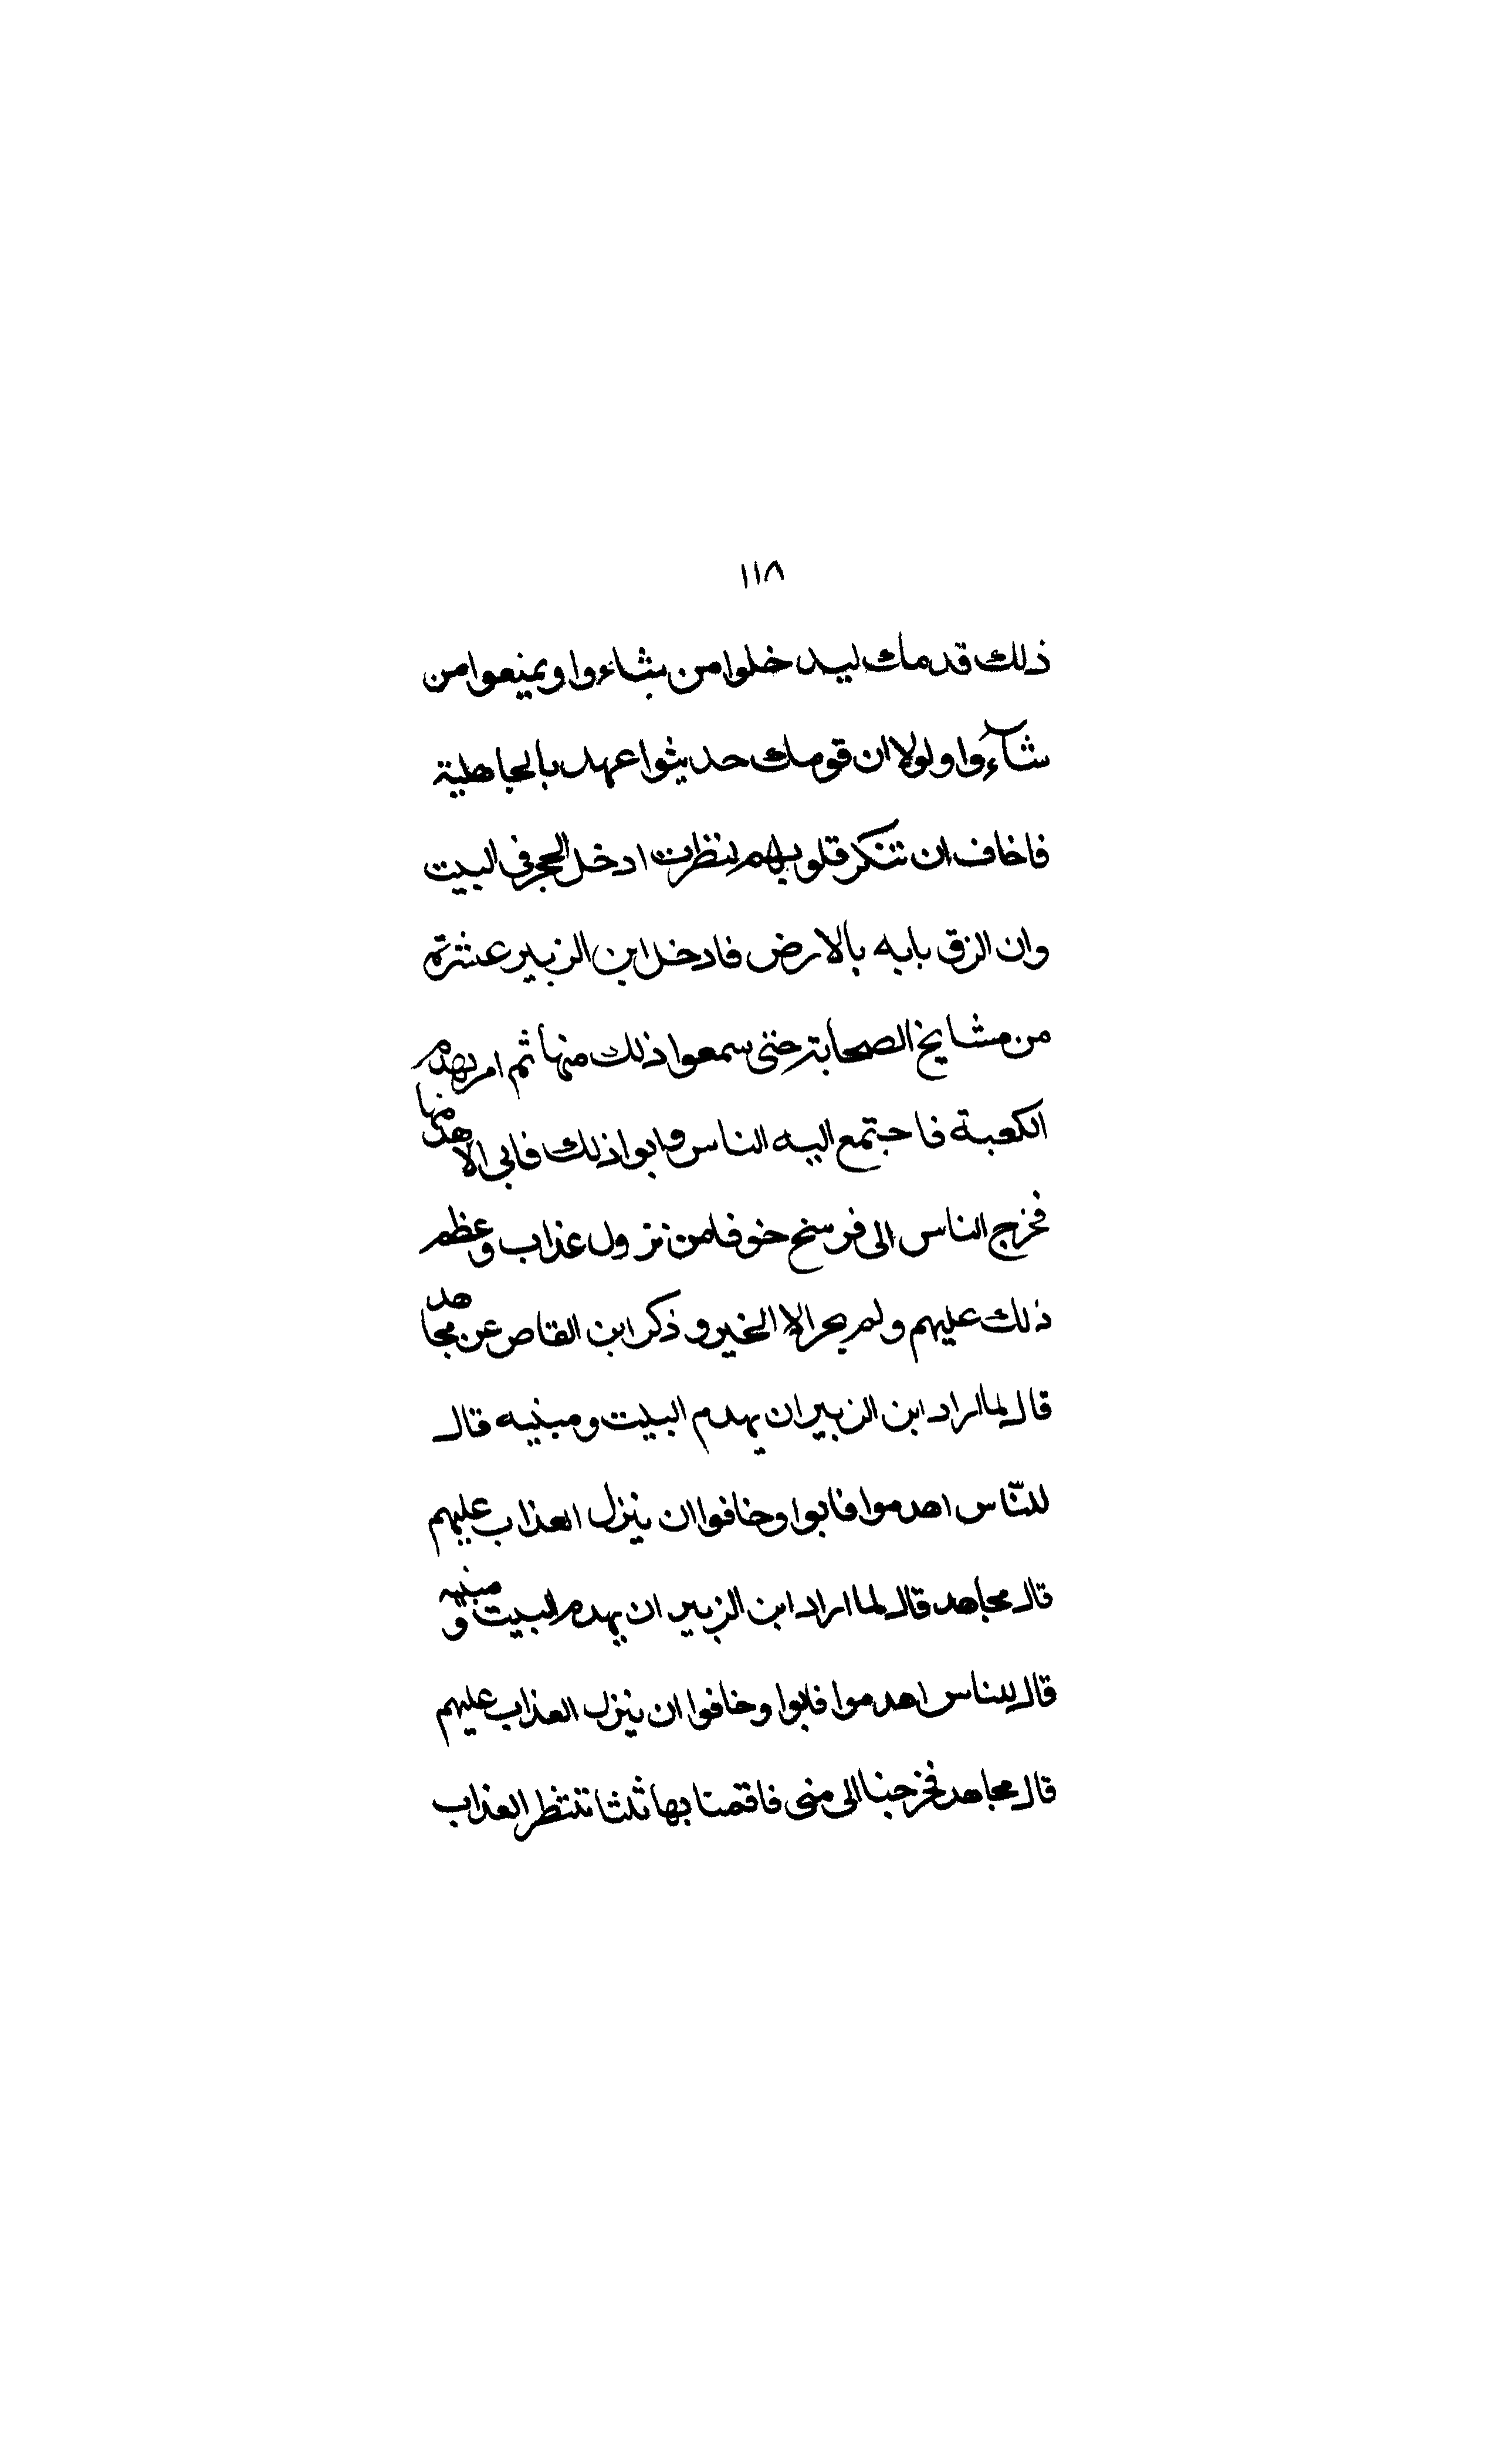 ١١٨
ذلك قدمك ليدخلوا من يشاءوا ويمنعوا من
شآءوا ولولا ان قومك حديثوا عهد بالجاهلية
فاخاف ان تنكر قلوبهم لنظرت ادخل الحجر في البيت
وان الزق بابه بالارض فادخل ابن الزبير عشرة
من مشايخ الصحابة حتى سمعوا ذلك منها ثم امر بهدم
الكعبة فاجتمع اليه الناس وابوا ذلك فابى الا هدمها
فخرج الناس الى فرسخ خوفا من نزول عذاب وعظم
ذلك عليهم ولم يجر الا الخير وذكر ابن القاص عن مجاهد
قال لما اراد ابن الزبير ان يهدم البيت ومبنيه قال
للنّاس اهدموا فابوا وخافوا ان ينزل العذاب عليهم
قال مجاهد قال لما اراد ابن الزبير ان يهدم البيت ومبنيه
قال للناس اهدموا فابوا وخافوا ان ينزل العذاب عليهم
قال مجاهد فخرجنا الى منى فاقمنا بها ثلثا ننتظر العذاب